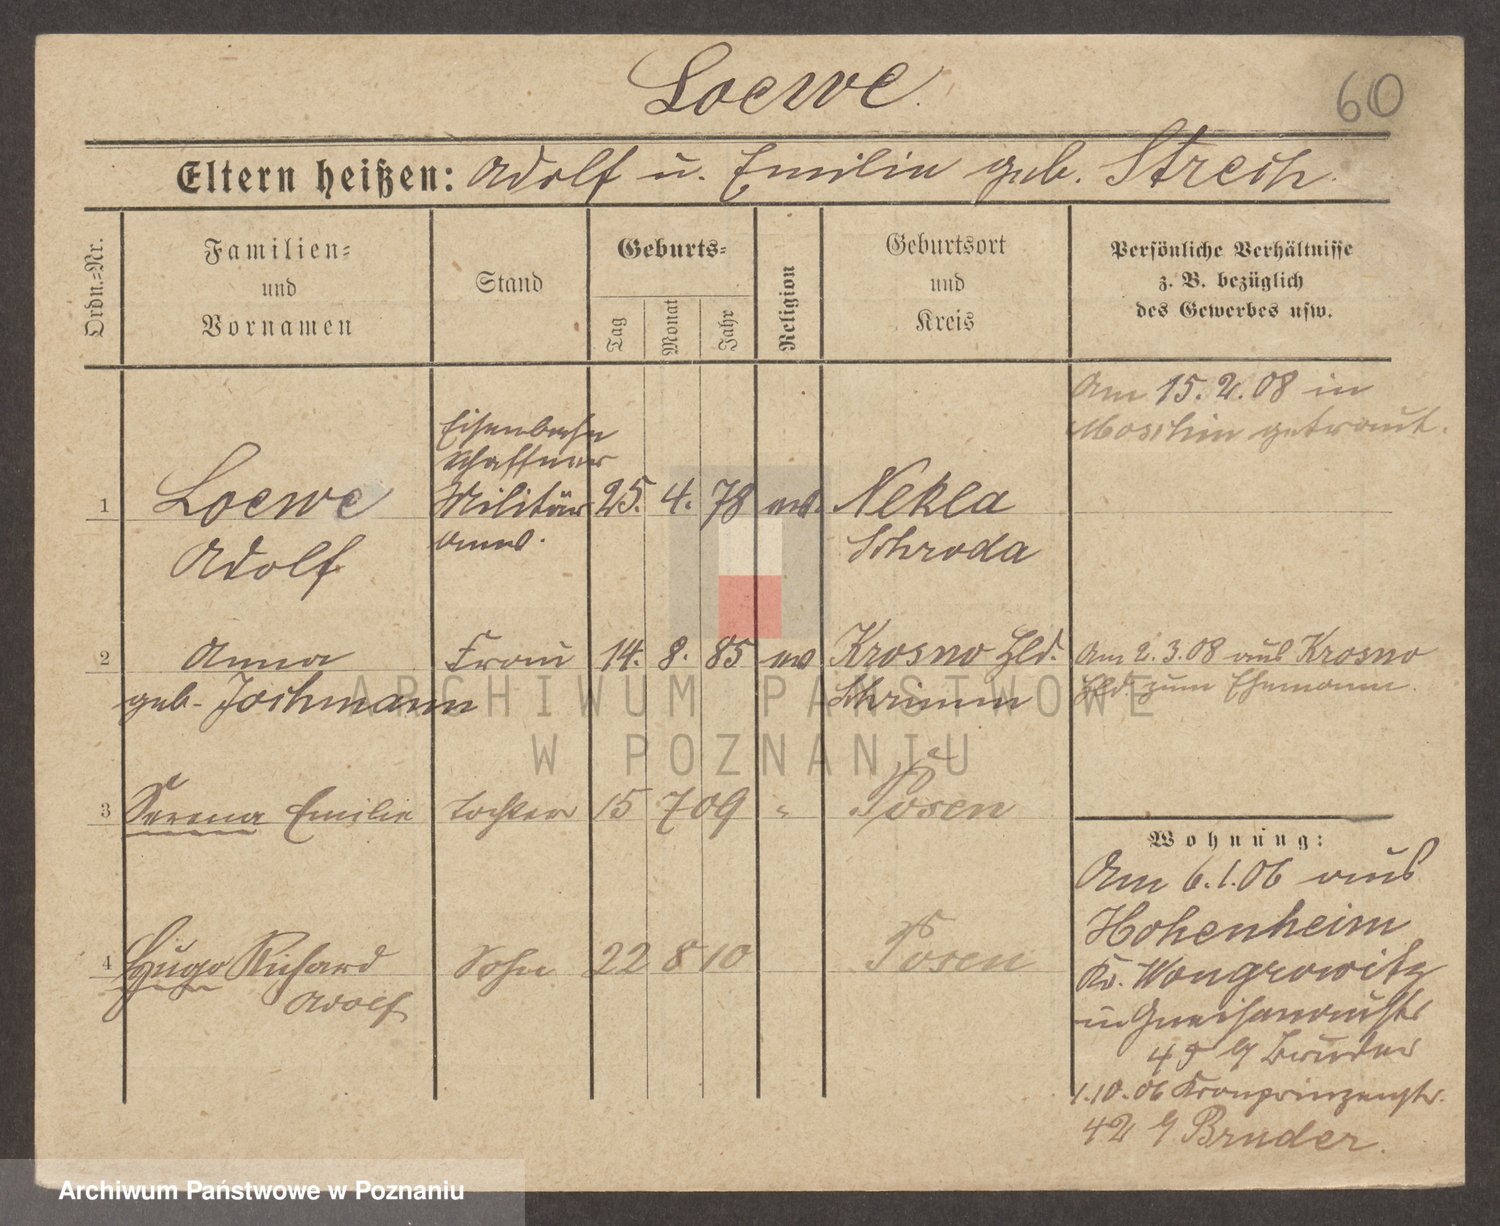 Loewe.
60
Eltern heißen: Adolf u. Emilie geb. Strech.
Ordn.=Nr.
Familien=
und
Vornamen
Stand
Geburts=
Tag
Monat
Jahr
Religion
Geburtsort
und
Kreis
Persönliche Verhältnisse
z. B. bezüglich
des Gewerbes usw.
Am 15.2.08 in
Moschin getraut.
1
Loewe
Adolf
Eisenbahn
schaffner
Militär
anw.
25. 4. 78
ev.
Nekla
Schroda
2
Anna
geb. Jochmann
Frau
14. 8. 85
ev
Krosno Hld.
Schrimm
Am 2.3.08 aus Krosno
Hld zum Ehemann.
3
Serena Emilie
Tochter
15 7 09
"
Posen
4
Hugo Richard
Adolf
Sohn
22 8 10
Posen
Wohnung:
Am 6.1.06 aus
Hohenheim
Kr. Wongrowitz
in Gneisenaustr
4 b/ Bruder
1.10.06 Kronprinzenstr.
42 b/ Bruder.
ARCHIWUM PAŃSTWOWE
W POZNANIU
Archiwum Państwowe w Poznaniu